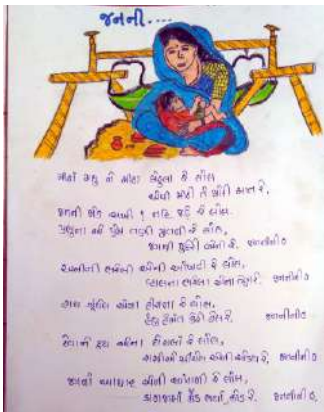 જનની....
મીઠાં મધુ ને મીઠા મેહુલા રે લોલ
એથી મીઠી તે મોરી માત રે,
જનની જોડ સખી ! નહિ જડે રે લોલ.
પ્રભુના એ પ્રેમ તણી પૂતળી રે લોલ,
જગથી જુદેરી એની રે. જનનીની૦
અમીની ભરેલ એની આંખડી રે લોલ,
વ્હાલનાં ભરેલાં એના વેણ રે. જનનીની૦
હાથ ગૂંથેલ એના હીરના રે લોલ,
હૈયું હેમંત કેરી હેલ રે. જનનીની૦
દેવોને દૂધ એનાં દોહ્યલા રે લોલ,
શશીએ સીંચેલ એની સોડ્ય રે. જનનીની૦
જગનો આધાર એની આંગળી રે લોલ,
કાળજામાં કૈંક ભર્યા કોડ રે. જનનીની૦